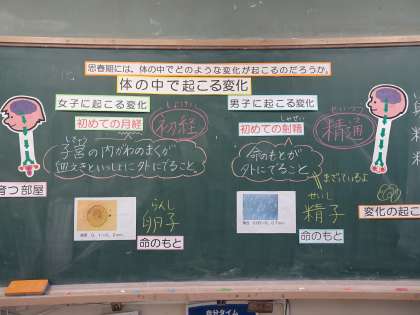 思春期には、体の中でどのような変化が起こるのだろうか。
体の中で起こる変化
女子に起こる変化
初めての月経
しょけい
初経
子宮の内がわのまくが
血えきといっしょに外にでること。
らんし
卵子
命のもと
育つ部屋
男子に起こる変化
しゃせい
初めての射精
せいつう
精通
命のもとが
外にでること。
まざっているよ
せいし
精子
命のもと
変化の起こ
自分タイム